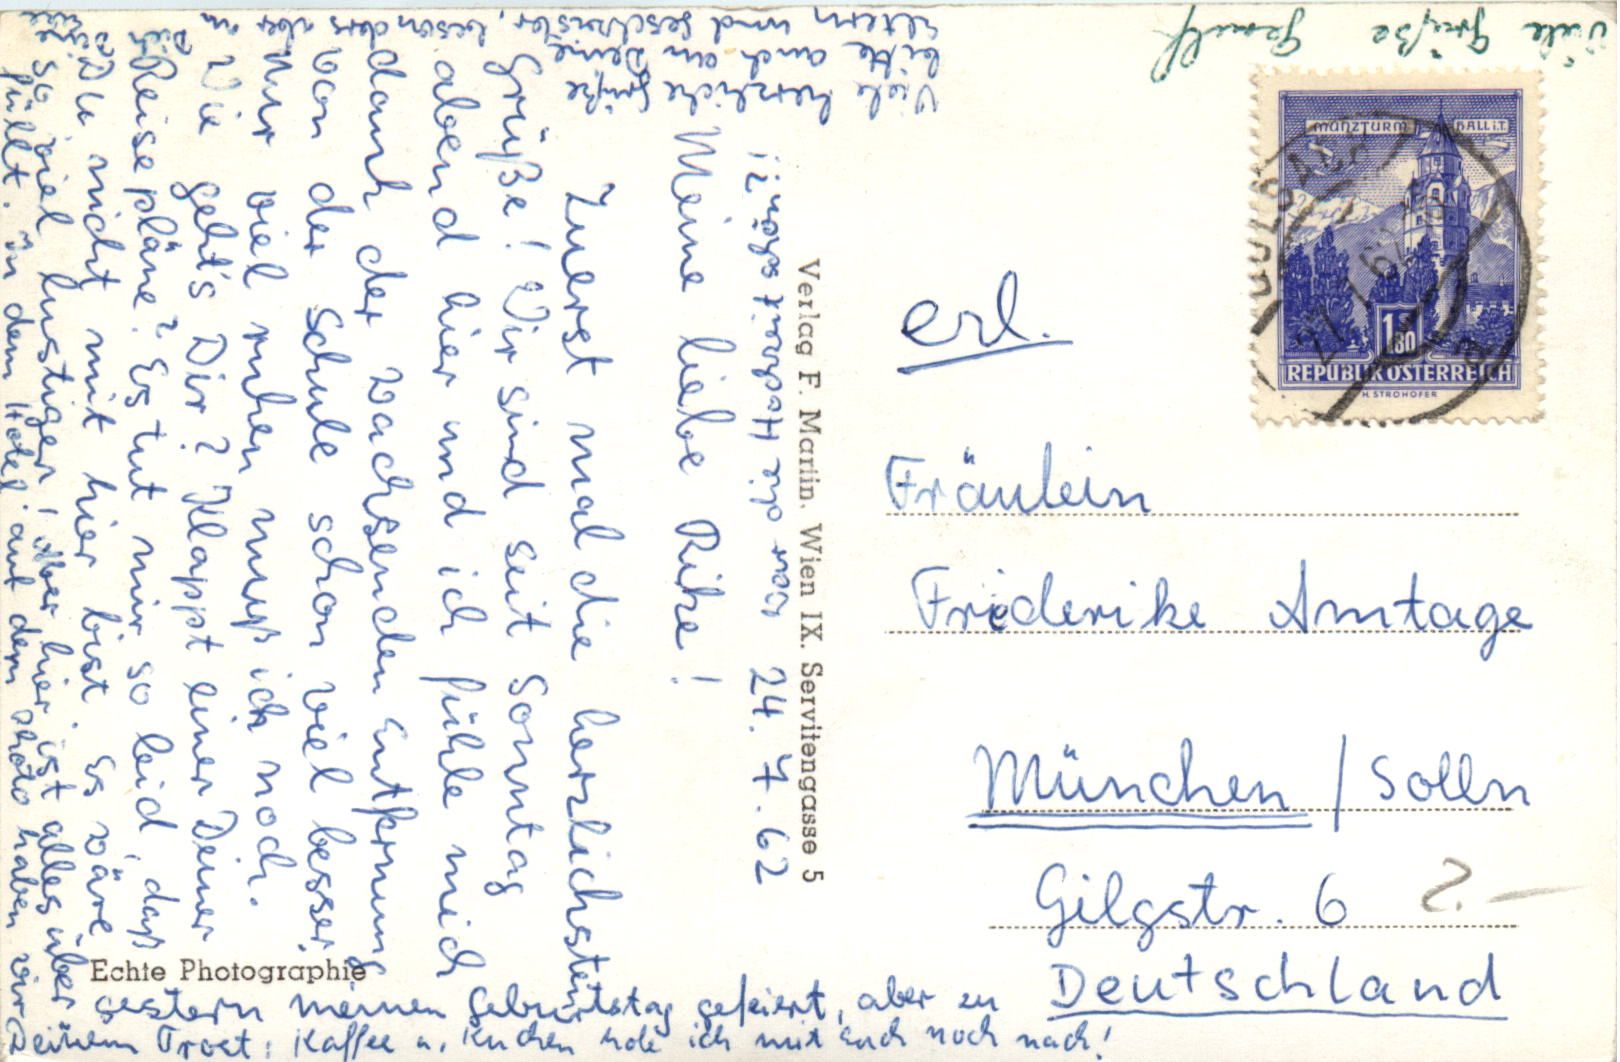 Viele Grüße
MÜNZTURM HALL i.T.
1.80
REPUBLIK ÖSTERREICH
H. STROHOFER
erl.
Fräulein
Friederike Amtage
München / Solln
Gilgstr. 6 2.-
Deutschland
Verlag F. Marlin, Wien IX. Servitengasse 5
24. 7. 62
Meine liebe Rike!
Zuerst mal die herzlichsten
Grüße! Wir sind seit Sonntag
abend hier und ich fühle mich
dank der wachsenden Entfernung
von der Schule schon viel besser.
Nur viel ruhen muß ich noch.
Wie geht's Dir? Klappt einer Deiner
Reisepläne? Es tut mir so leid, daß
Du nicht mit hier bist. Es wäre
so viel lustiger! Aber hier ist alles über
füllt. In dem Hotel auf dem Photo haben wir
gestern meinen Geburtstag gefeiert, aber zu
Deinem Trost: Kaffee u. Kuchen hole ich mit Euch noch nach!
Viele herzliche Grüße
bitte auch an Deine
Eltern und Geschwister, besonders aber an
Dich
Echte Photographie